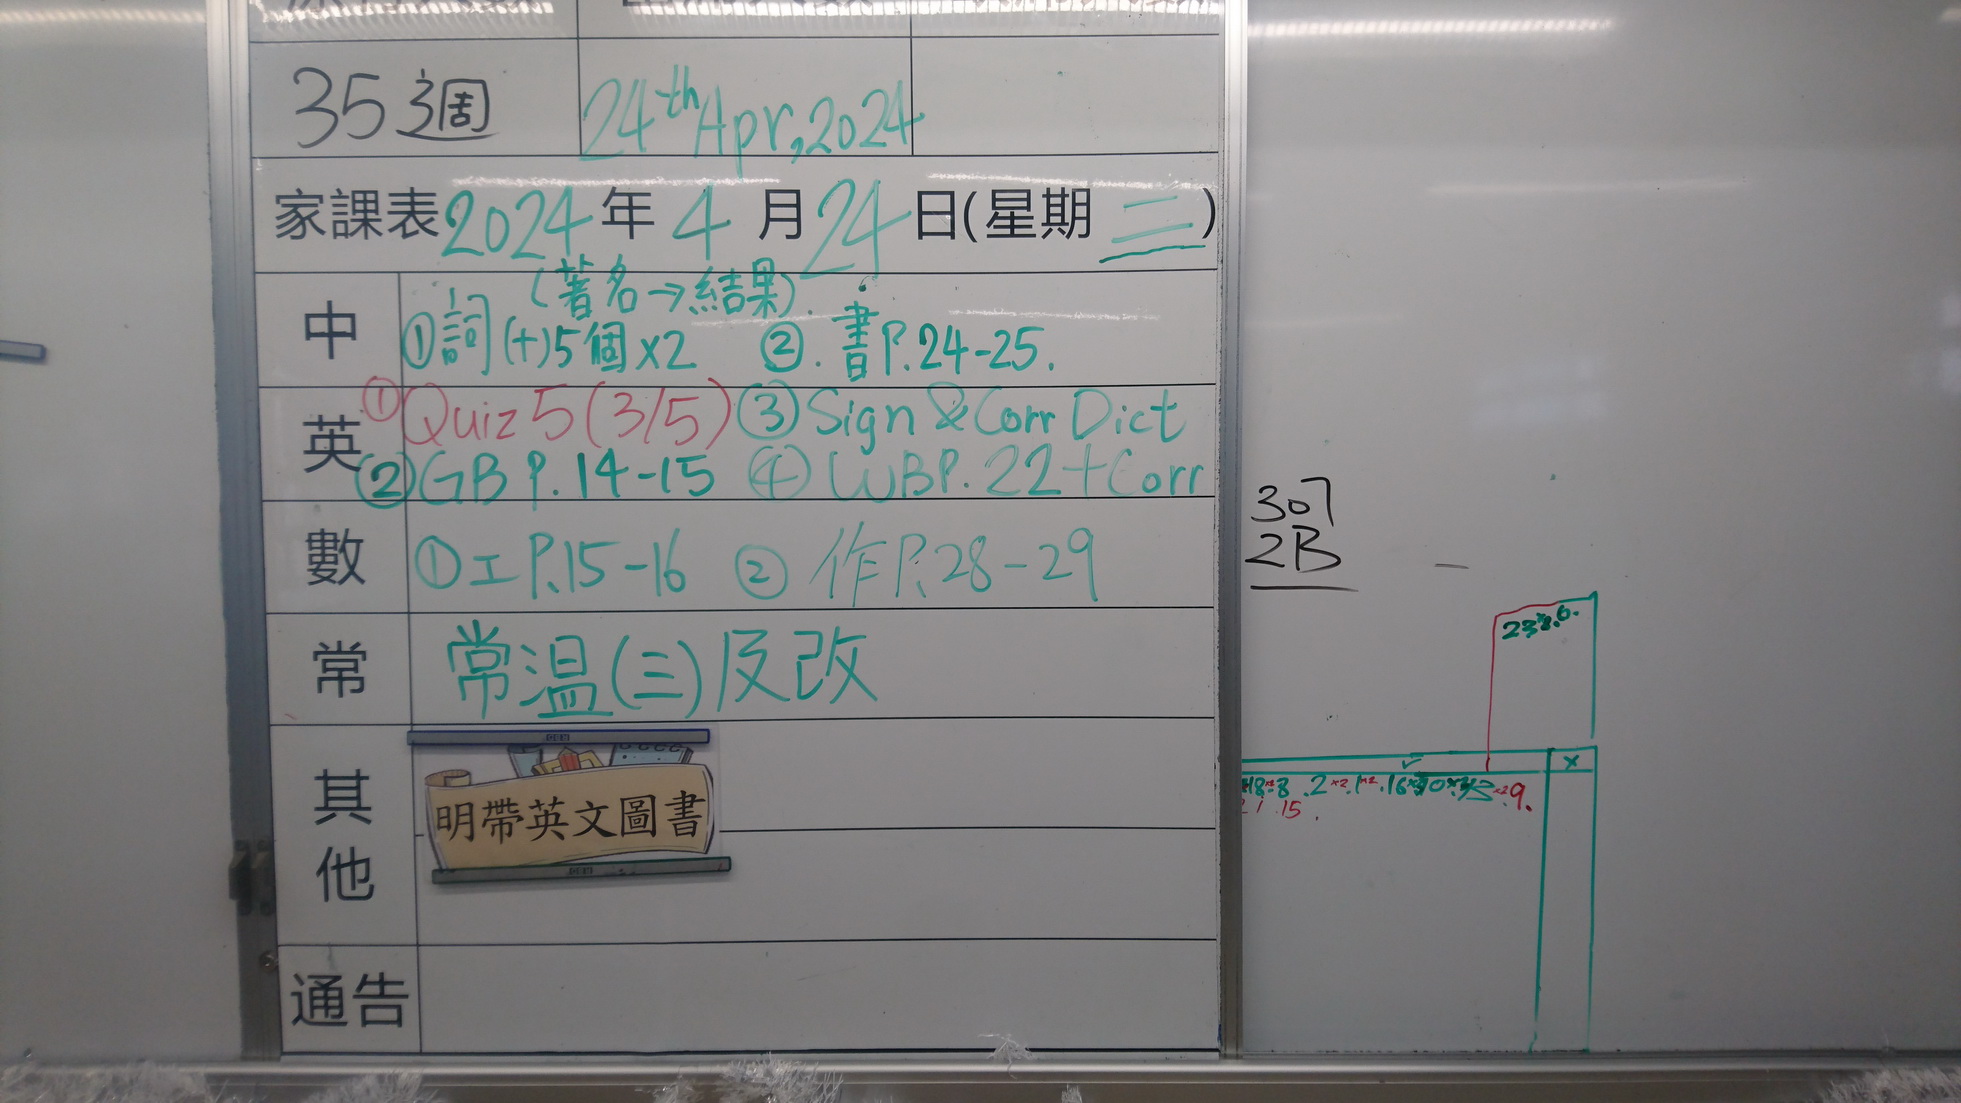 35週 24th Apr, 2024
家課表 2024 年 4 月 24 日(星期 三)
中 (著名→結果)
①詞(+)5個x2 ②. 書P.24-25.
英 ①Quiz 5 (3/5) ③Sign & Corr Dict
②GB P.14-15 ④WB P.22+Corr
數 ①工P.15-16 ②作P.28-29
常 常溫(三)及改
其他 明帶英文圖書
通告
307
2B
x
15.